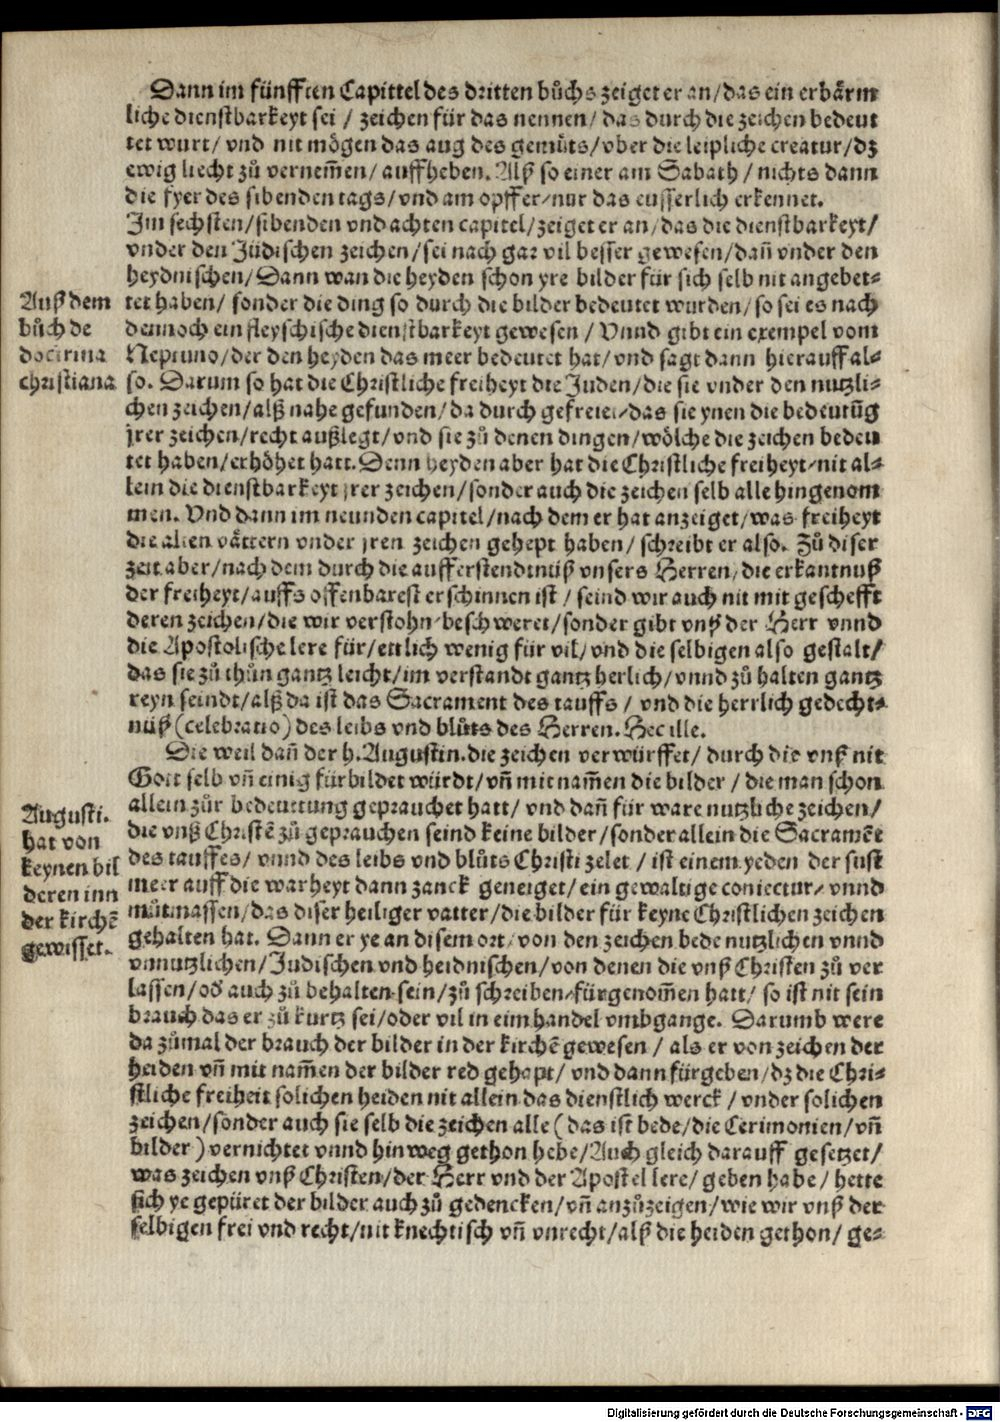 Dann im fünfften Capittel des dritten bůchs zeiget er an/das ein erbårm
liche dienstbarkeyt sei / zeichen für das nennen/ das durch die zeichen bedeut
tet wurt/ vnd nit mögen das aug des gemůts/vber die leipliche creatur/dz
ewig liecht zů vernem̃en/ auffheben. Alß so einer am Sabath / nichts dann
die fyer des sibenden tags/vnd am opffer/nur das eusserlich erkennet.
Im sechsten/sibenden vnd achten capitel/zeiget er an/das die dienstbarkeyt/
vnder den Jüdischen zeichen/sei nach gar vil besser gewesen/dañ vnder den
heydnischen/Dann wan die heyden schon yre bilder für sich selb nit angebet⸗
Auß dem
bůch de
doctrina
christiana
tet haben/ sonder die ding so durch die bilder bedeutet wurden/so sei es nach
dennoch ein fleyschische dienstbarkeyt gewesen / Vnnd gibt ein exempel vom
Neptuno/der den heyden das meer bedeutet hat/vnd sagt dann hierauff al⸗
so. Darum so hat die Christliche freiheyt die Juden/die sie vnder den nutzli⸗
chen zeichen/alß nahe gefunden/da durch gefreiet/das sie ynen die bedeutũg
jrer zeichen/recht außlegt/vnd sie zů denen dingen/wölche die zeichen bedeu
tet haben/erhöhet hatt. Denn heyden aber hat die Christliche freiheyt/nit al⸗
lein die dienstbarkeyt jrer zeichen/sonder auch die zeichen selb alle hingenom
men. Vnd dann im neunden capitel/nach dem er hat anzeiget/was freiheyt
die alten våttern vnder jren zeichen gehept haben/ schreibt er also. Zů diser
zeit aber/nach dem durch die aufferstendtnüß vnsers Herren/die erkantnuß
der freiheyt/auffs offenbarest erschinnen ist / seind wir auch nit mit geschefft
deren zeichen/die wir verstohn/beschweret/sonder gibt vnß der Herr vnnd
die Apostolische lere für/ettlich wenig für vil/vnd die selbigen also gestalt/
das sie zů thůn gantz leicht/im verstandt gantz herlich/vnnd zů halten gantz
reyn seindt/alß da ist das Sacrament des tauffs / vnd die herrlich gedecht⸗
nüß (celebratio) des leibs vnd blůts des Herren. Hec ille.
Die weil dañ der h. Augustin. die zeichen verwürffet/ durch die vnß nit
Gott selb vñ einig fürbildet würdt/vñ mit nam̃en die bilder / die man schon
allein zůr bedeuttung geprauchet hatt/ vnd dañ für ware nutzliche zeichen/
Augusti.
hat von
keynen bil
deren inn
der kirchẽ
gewisset.
die vnß Christẽ zů geprauchen seind keine bilder/sonder allein die Sacramẽt
des tauffes/ vnnd des leibs vnd blůts Christi zelet / ist einem yeden der sust
meer auff die warheyt dann zanck geneiget/ein gewaltige coniectur/ vnnd
můtmassen/das diser heiliger vatter/die bilder für keyne Christlichen zeichen
gehalten hat. Dann er ye an disem ort/von den zeichen bede nutzlichen vnnd
vnnutzlichen/Judischen vnd heidnischen/von denen die vnß Christen zů ver
lassen/oď auch zů behalten sein/zů schreiben/fürgenom̃en hatt/ so ist nit sein
brauch das er zů kurtz sei/oder vil in eim handel vmbgange. Darumb were
da zůmal der brauch der bilder in der kirchẽ gewesen / als er von zeichen der
heiden vñ mit nam̃en der bilder red gehapt/ vnd dann fürgeben/dz die Chri⸗
stliche freiheit solichen heiden nit allein das dienstlich werck / vnder solichen
zeichen/sonder auch sie selb die zeichen alle (das ist bede/die Cerimonien/vñ
bilder) vernichtet vnnd hinweg gethon hebe/Auch gleich darauff gesetzet/
was zeichen vnß Christen/der Herr vnd der Apostel lere/ geben habe/ hette
sich ye gepüret der bilder auch zů gedencken/vñ anzůzeigen/wie wir vnß der
selbigen frei vnd recht/nit knechtisch vñ vnrecht/alß die heiden gethon/ ge⸗
Digitalisierung gefördert durch die Deutsche Forschungsgemeinschaft - DFG